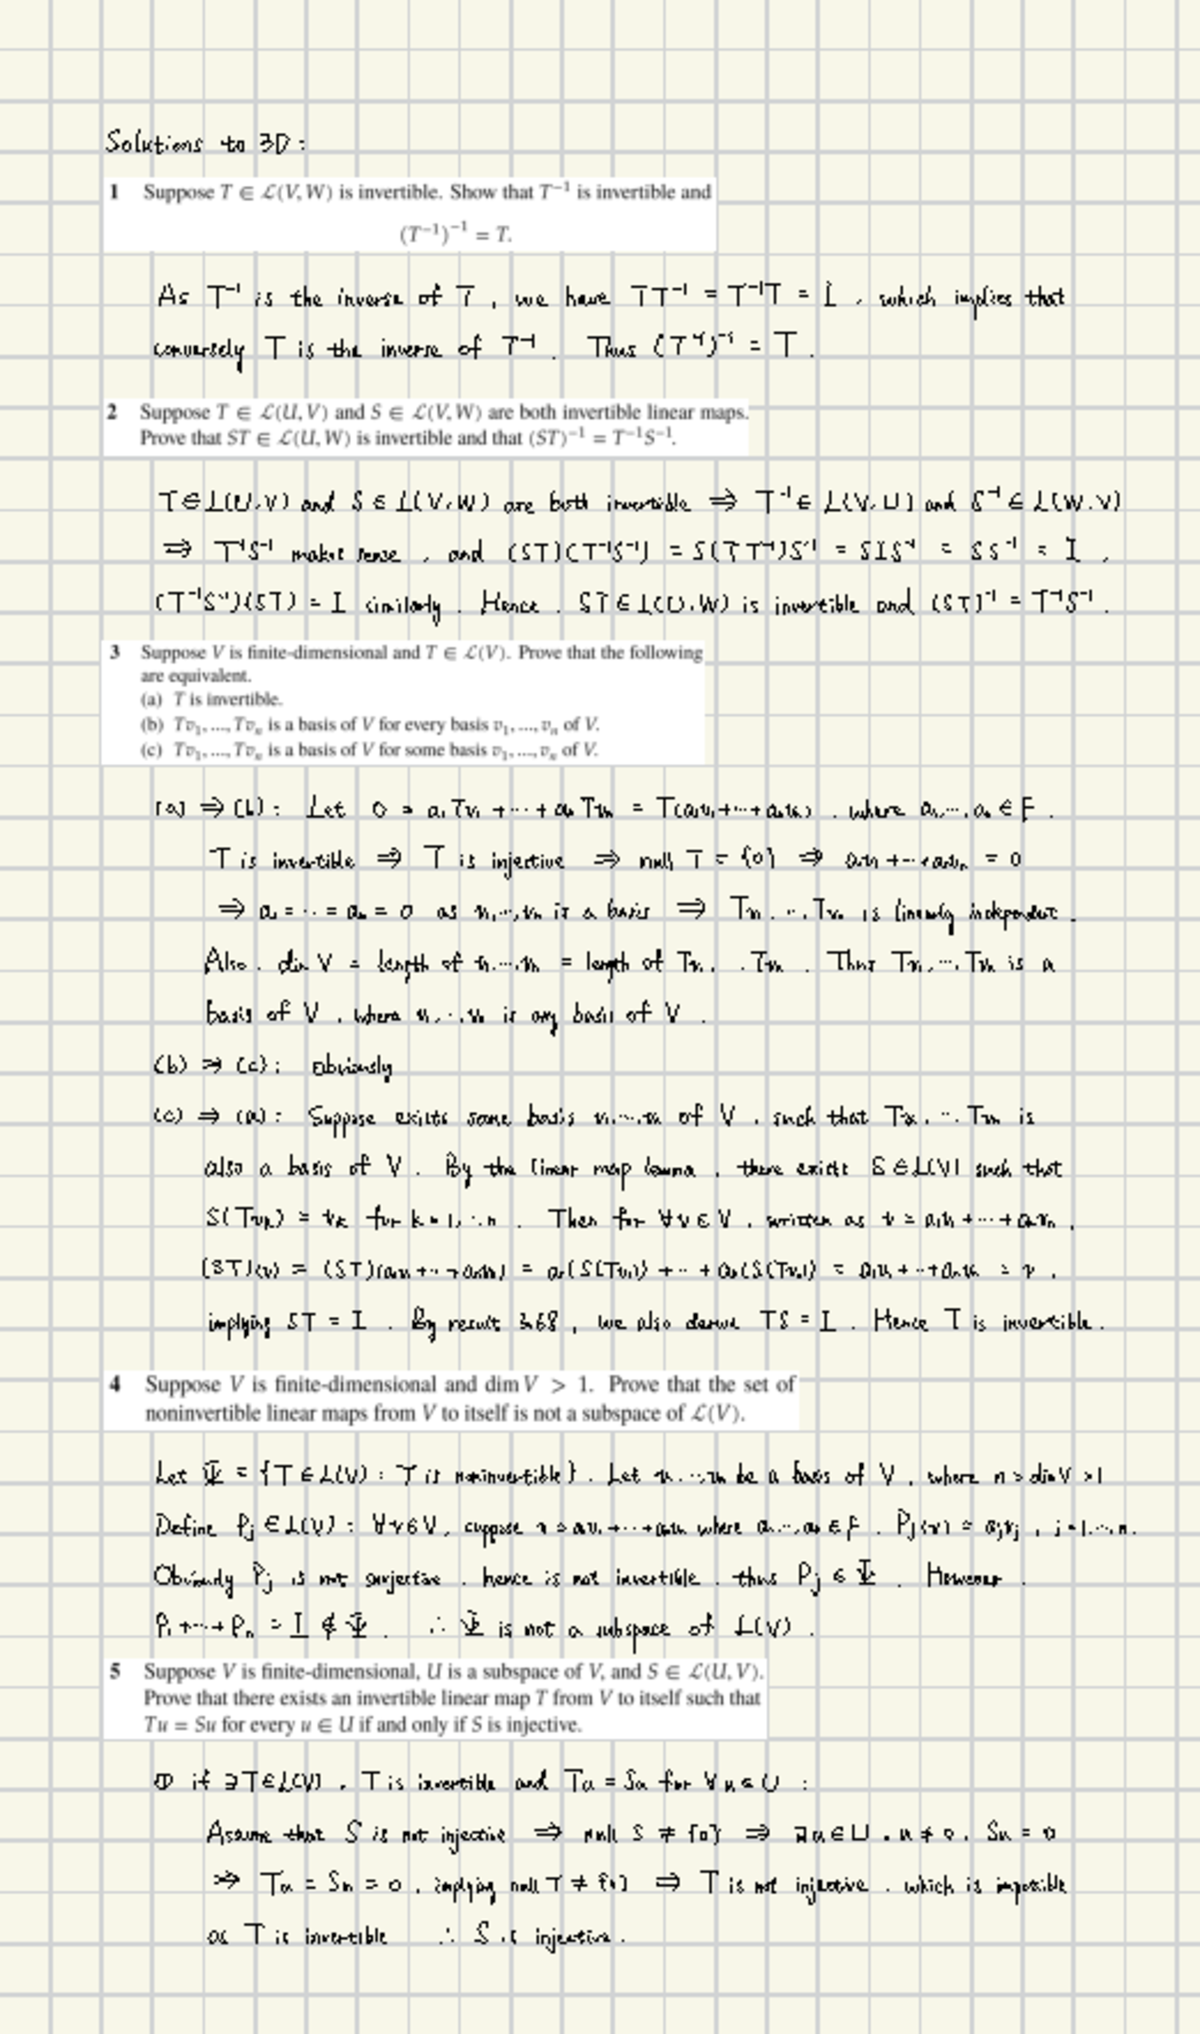 Solutions to 3D :
1 Suppose T ∈ ℒ(V, W) is invertible. Show that T⁻¹ is invertible and
(T⁻¹)⁻¹ = T.
As T⁻¹ is the inverse of T , we have TT⁻¹ = T⁻¹T = I , which implies that
conversely T is the inverse of T⁻¹ . Thus (T⁻¹)⁻¹ = T .
2 Suppose T ∈ ℒ(U, V) and S ∈ ℒ(V, W) are both invertible linear maps.
Prove that ST ∈ ℒ(U, W) is invertible and that (ST)⁻¹ = T⁻¹S⁻¹.
T ∈ L(U,V) and S ∈ L(V,W) are both invertible ⇒ T⁻¹ ∈ L(V,U) and S⁻¹ ∈ L(W,V)
⇒ T⁻¹S⁻¹ makes sense , and (ST)(T⁻¹S⁻¹) = S(TT⁻¹)S⁻¹ = SIS⁻¹ = SS⁻¹ = I ,
(T⁻¹S⁻¹)(ST) = I similarly . Hence , ST ∈ L(U,W) is invertible and (ST)⁻¹ = T⁻¹S⁻¹ .
3 Suppose V is finite-dimensional and T ∈ ℒ(V). Prove that the following
are equivalent.
(a) T is invertible.
(b) Tv₁, ..., Tvₙ is a basis of V for every basis v₁, ..., vₙ of V.
(c) Tv₁, ..., Tvₙ is a basis of V for some basis v₁, ..., vₙ of V.
(a) ⇒ (b) : Let 0 = a₁Tv₁ + ··· + aₙTvₙ = T(a₁v₁+···+aₙvₙ) , where a₁,···,aₙ ∈ F .
T is invertible ⇒ T is injective ⇒ null T = {0} ⇒ a₁v₁+···+aₙvₙ = 0
⇒ a₁ = ··· = aₙ = 0 as v₁,···,vₙ is a basis ⇒ Tv₁, ···, Tvₙ is linearly independent .
Also , dim V = length of v₁,···,vₙ = length of Tv₁, ··, Tvₙ . Thus Tv₁, ···, Tvₙ is a
basis of V , where v₁,···,vₙ is any basis of V .
(b) ⇒ (c) : Obviously
(c) ⇒ (a) : Suppose exists some basis v₁,···,vₙ of V , such that Tv₁, ···, Tvₙ is
also a basis of V . By the linear map lemma , there exists S ∈ L(V) such that
S(Tvₖ) = vₖ for k = 1,···,n . Then for ∀v ∈ V , written as v = a₁v₁ + ··· + aₙvₙ ,
(ST)(v) = (ST)(a₁v₁+···+aₙvₙ) = a₁(S(Tv₁)) + ··· + aₙ(S(Tvₙ)) = a₁v₁ + ··· + aₙvₙ = v ,
implying ST = I . By result 3.68 , we also derive TS = I . Hence T is invertible .
4 Suppose V is finite-dimensional and dim V > 1. Prove that the set of
noninvertible linear maps from V to itself is not a subspace of ℒ(V).
Let Ψ = {T ∈ L(V) : T is noninvertible} . Let v₁,···,vₙ be a basis of V , where n = dim V > 1
Define Pⱼ ∈ L(V) : ∀v ∈ V , suppose v = a₁v₁+···+aₙvₙ where a₁,···,aₙ ∈ F . Pⱼ(v) = aⱼvⱼ , j = 1,···,n.
Obviously Pⱼ is not surjective , hence is not invertible , thus Pⱼ ∈ Ψ . However ,
P₁ + ··· + Pₙ = I ∉ Ψ . ∴ Ψ is not a subspace of L(V) .
5 Suppose V is finite-dimensional, U is a subspace of V, and S ∈ ℒ(U, V).
Prove that there exists an invertible linear map T from V to itself such that
Tu = Su for every u ∈ U if and only if S is injective.
① if ∃T ∈ L(V) , T is invertible and Tu = Su for ∀u ∈ U :
Assume that S is not injective ⇒ null S ≠ {0} ⇒ ∃u ∈ U , u ≠ 0 , Su = 0
⇒ Tu = Su = 0 , implying null T ≠ {0} ⇒ T is not injective , which is impossible
as T is invertible ∴ S is injective .